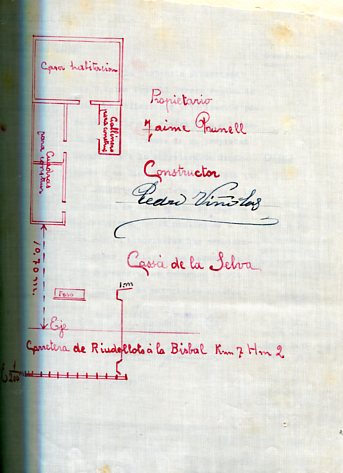 Casa habitacion
Gallinero
para conillos
Cuadras
Propietario
Jaime Prunell
Constructor
Pedro Viñolas
Cassá de la Selva
10,70 m.
1 m
Poso
Eje
Carretera de Riudellots á la Bisbal Km 7 Hm 2
E 1/200